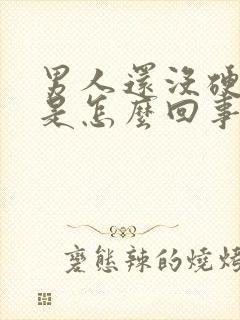 男人還沒硬
是怎麼回事
變態辣的燒烤